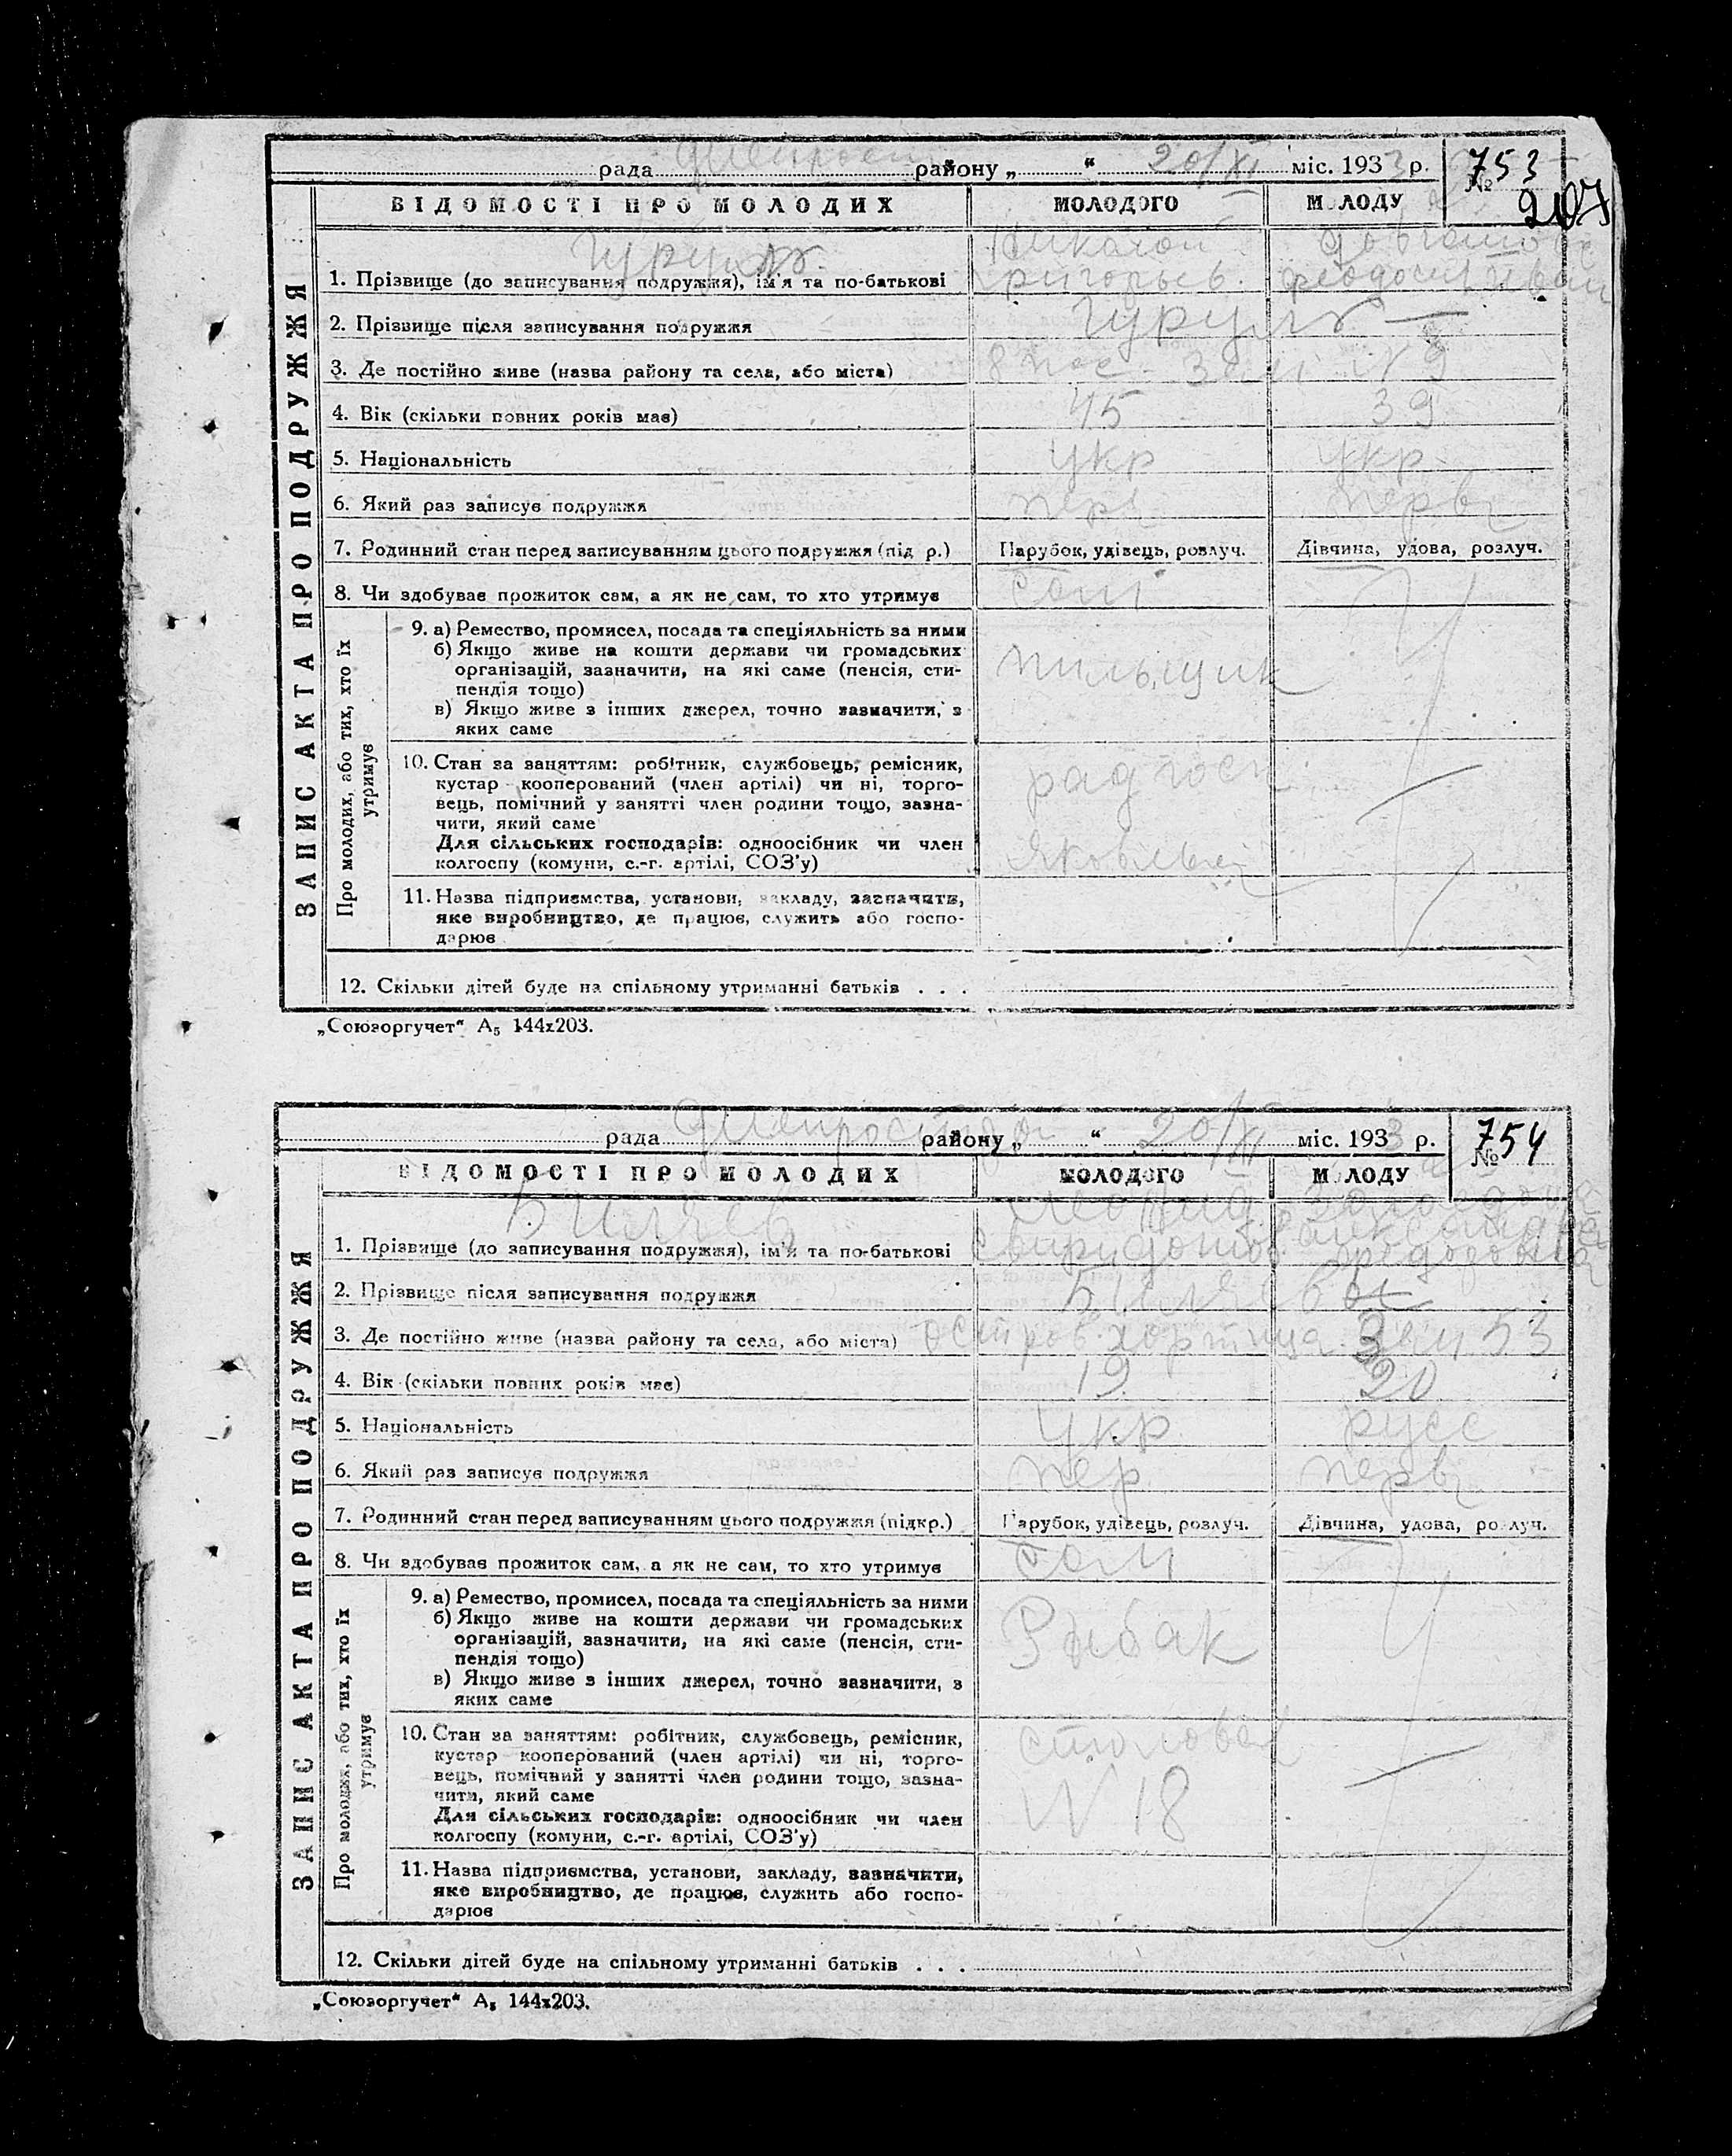 рада районУ „ “ 20/XI міс. 1933 р.
753
№
207
ВІДОМОСТІ ПРО МОЛОДИХ МОЛОДОГО МОЛОДУ
ЗАПИС АКТА ПРО ПОДРУЖЖЯ
Гуруля
1. Прізвище (до записування подружжя), ім'я та по-батькові
2. Прізвище після записування подружжя Гуруля —
3. Де постійно живе (назва району та села, або міста) 8 пос. Зем № 9
4. Вік (скільки повних років має) 45 39
5. Національність укр укр
6. Який раз записує подружжя перв перв
7. Родинний стан перед записуванням цього подружжя (під р.) Парубок, удівець, розлуч. Дівчина, удова, розлуч.
8. Чи здобуває прожиток сам, а як не сам, то хто утримує сам
Про молодих, або тих, хто їх
утримує
9. а) Ремество, промисел, посада та спеціяльність за ними
б) Якщо живе на кошти держави чи громадських
організацій, зазначити, на які саме (пенсія, сти-
пендія тощо)
пильщик
в) Якщо живе з інших джерел, точно зазначити, з
яких саме
10. Стан за заняттям: робітник, службовець, ремісник,
кустар кооперований (член артілі) чи ні, торго-
вець, помічний у занятті член родини тощо, зазна-
чити, який саме
радгосп
Для сільських господарів: одноосібник чи член
колгоспу (комуни, с.-г. артілі, СОЗ'у)
11. Назва підприємства, установи, закладу, зазначити,
яке виробництво, де працює, служить або госпо-
дарює
12. Скільки дітей буде на спільному утриманні батьків . . .
„Союзоргучет“ А5 144х203.
рада районУ „ “ 20/XI міс. 1933 р.
754
№
ВІДОМОСТІ ПРО МОЛОДИХ МОЛОДОГО МОЛОДУ
ЗАПИС АКТА ПРО ПОДРУЖЖЯ
Биляев Леонид
Александра
1. Прізвище (до записування подружжя), ім'я та по-батькові Спиридонов. Федоровна
2. Прізвище після записування подружжя Биляев
3. Де постійно живе (назва району та села, або міста) остров хортица Зем 53
4. Вік (скільки повних років має) 19 20
5. Національність укр русс
6. Який раз записує подружжя пер перв
7. Родинний стан перед записуванням цього подружжя (підкр.) Парубок, удівець, розлуч. Дівчина, удова, розлуч.
8. Чи здобуває прожиток сам, а як не сам, то хто утримує сам
Про молодих, або тих, хто їх
утримує
9. а) Ремество, промисел, посада та спеціяльність за ними
б) Якщо живе на кошти держави чи громадських
організацій, зазначити, на які саме (пенсія, сти-
пендія тощо)
Рибак
в) Якщо живе з інших джерел, точно зазначити, з
яких саме
10. Стан за заняттям: робітник, службовець, ремісник,
кустар кооперований (член артілі) чи ні, торго-
вець, помічний у занятті член родини тощо, зазна-
чити, який саме
столовая
№ 18
Для сільських господарів: одноосібник чи член
колгоспу (комуни, с.-г. артілі, СОЗ'у)
11. Назва підприємства, установи, закладу, зазначити,
яке виробництво, де працює, служить або госпо-
дарює
12. Скільки дітей буде на спільному утриманні батьків . . .
„Союзоргучет“ А5 144х203.